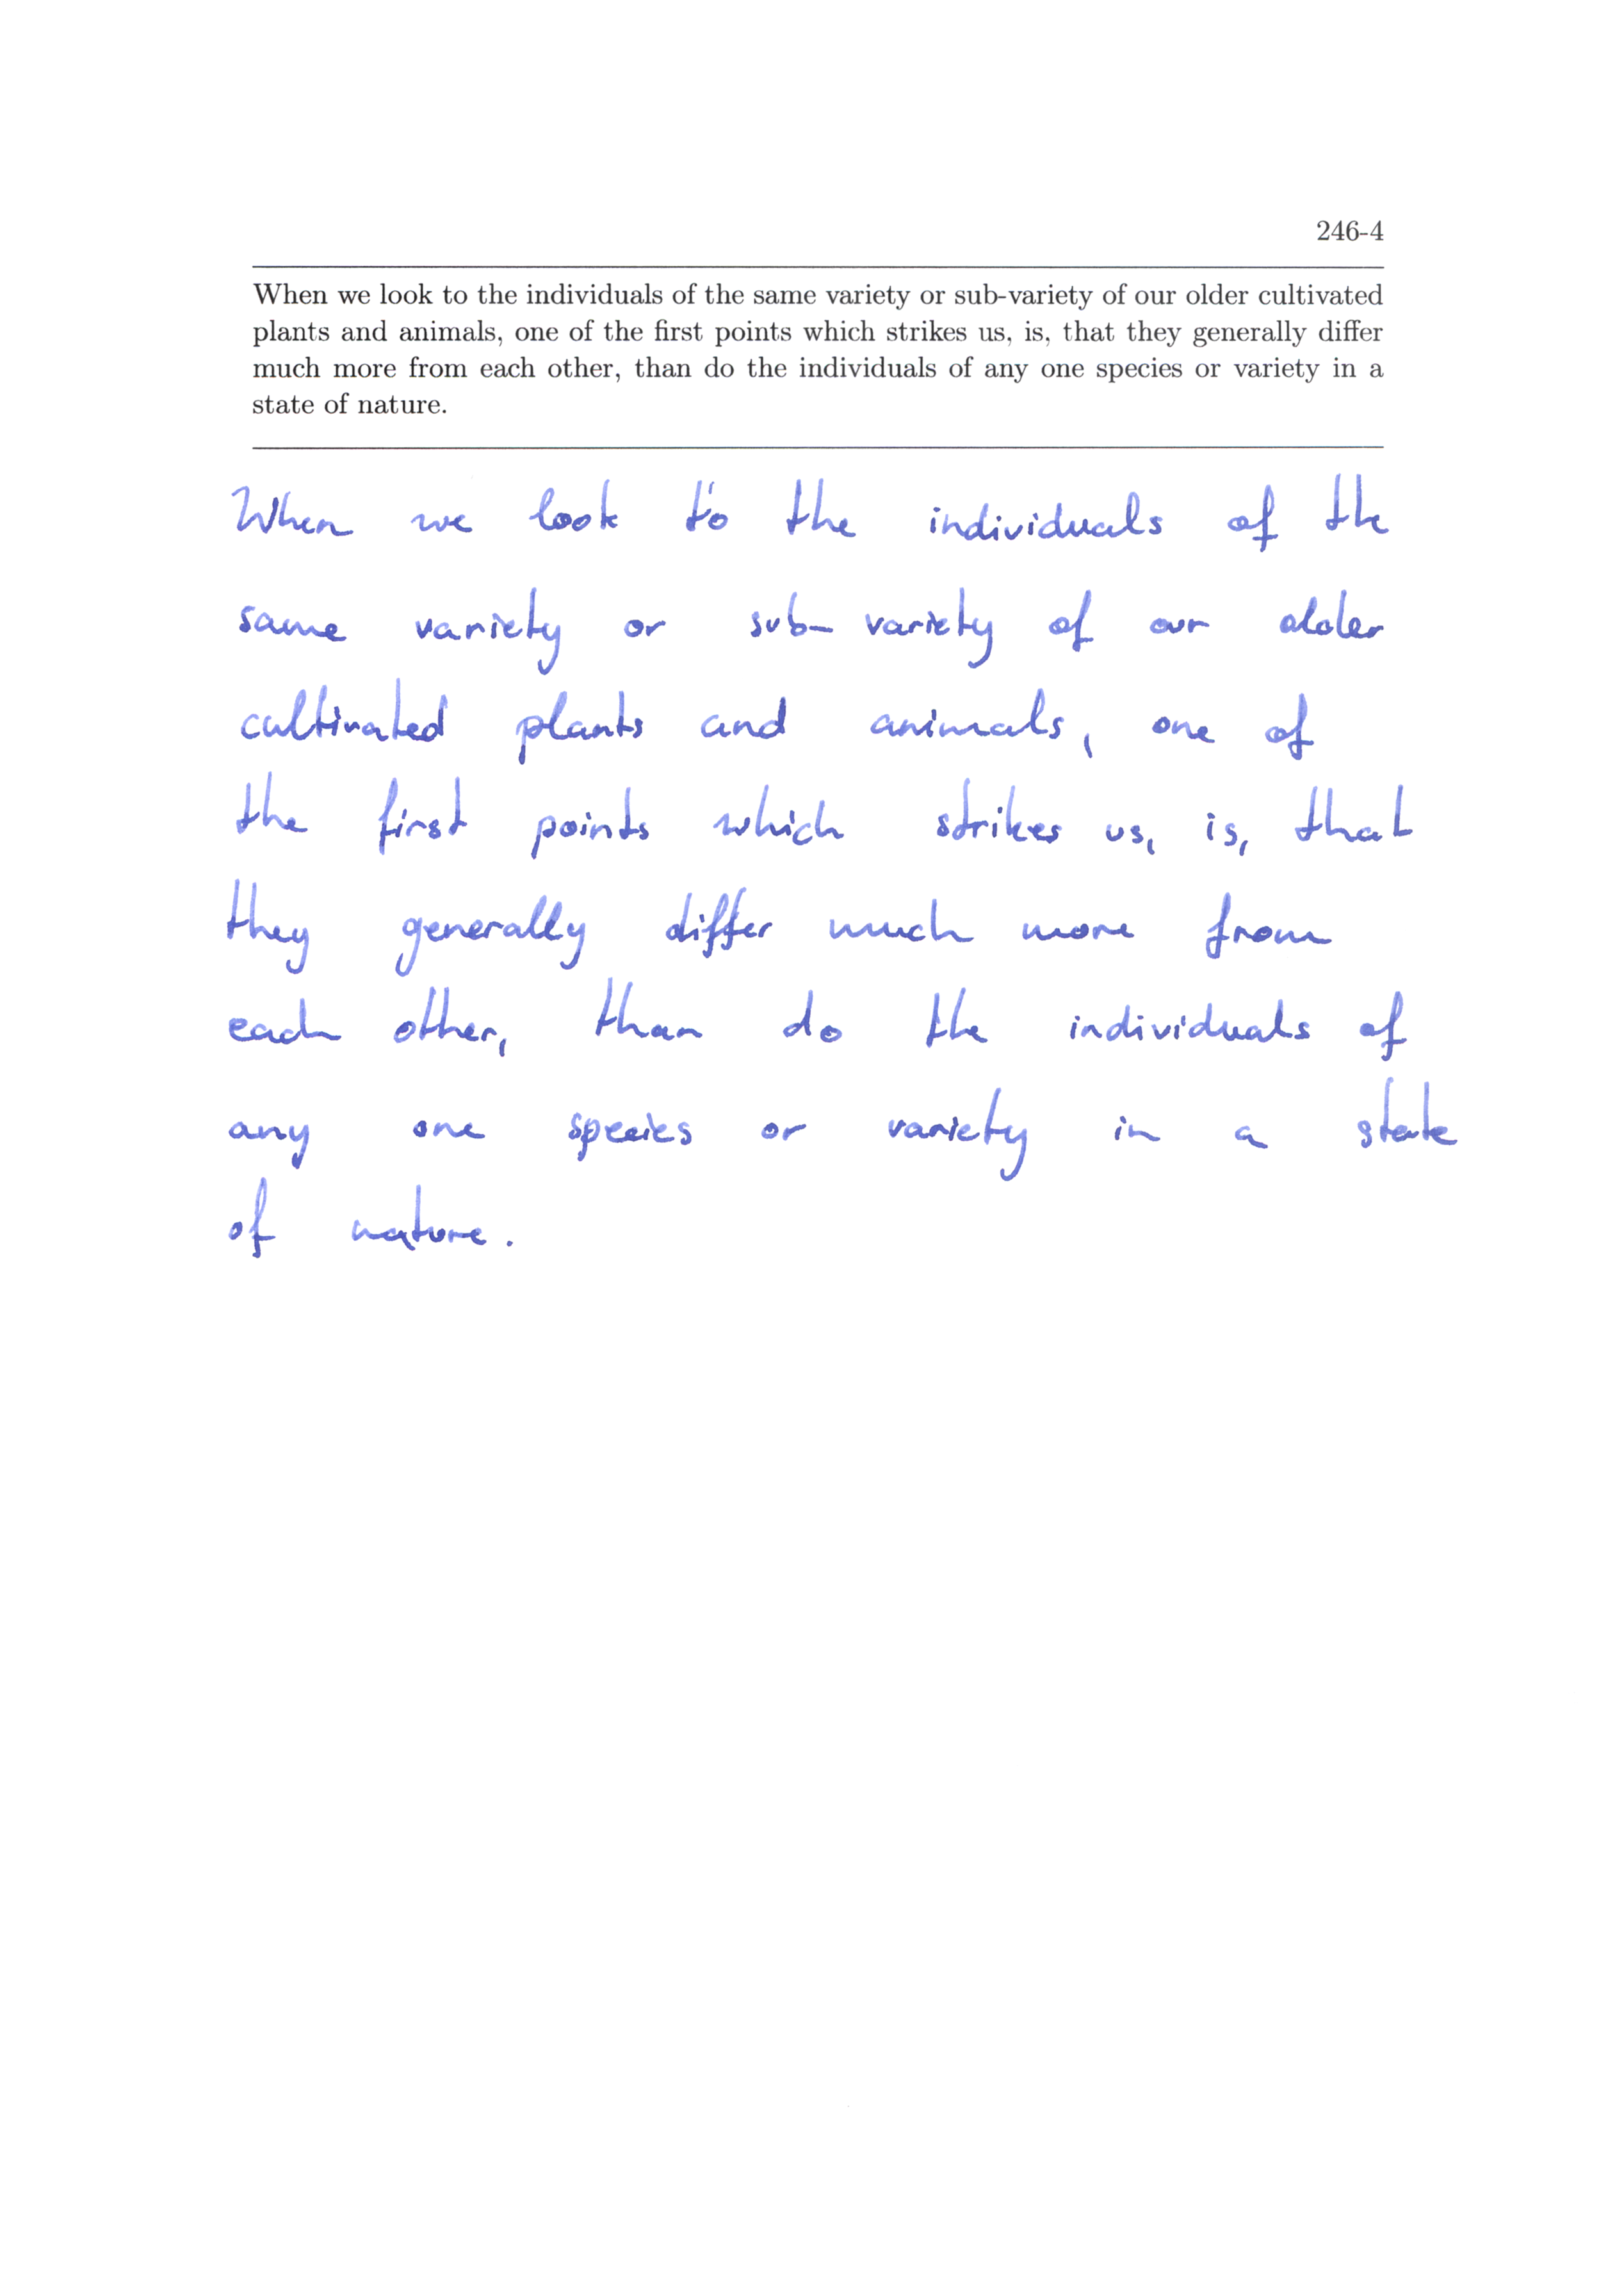 246-4
When we look to the individuals of the same variety or sub-variety of our older cultivated
plants and animals, one of the first points which strikes us, is, that they generally differ
much more from each other, than do the individuals of any one species or variety in a
state of nature.
When we look to the individuals of the
same variety or sub- variety of our older
cultivated plants and animals, one of
the first points which strikes us, is, that
they generally differ much more from
each other, than do the individuals of
any one species or variety in a state
of nature.